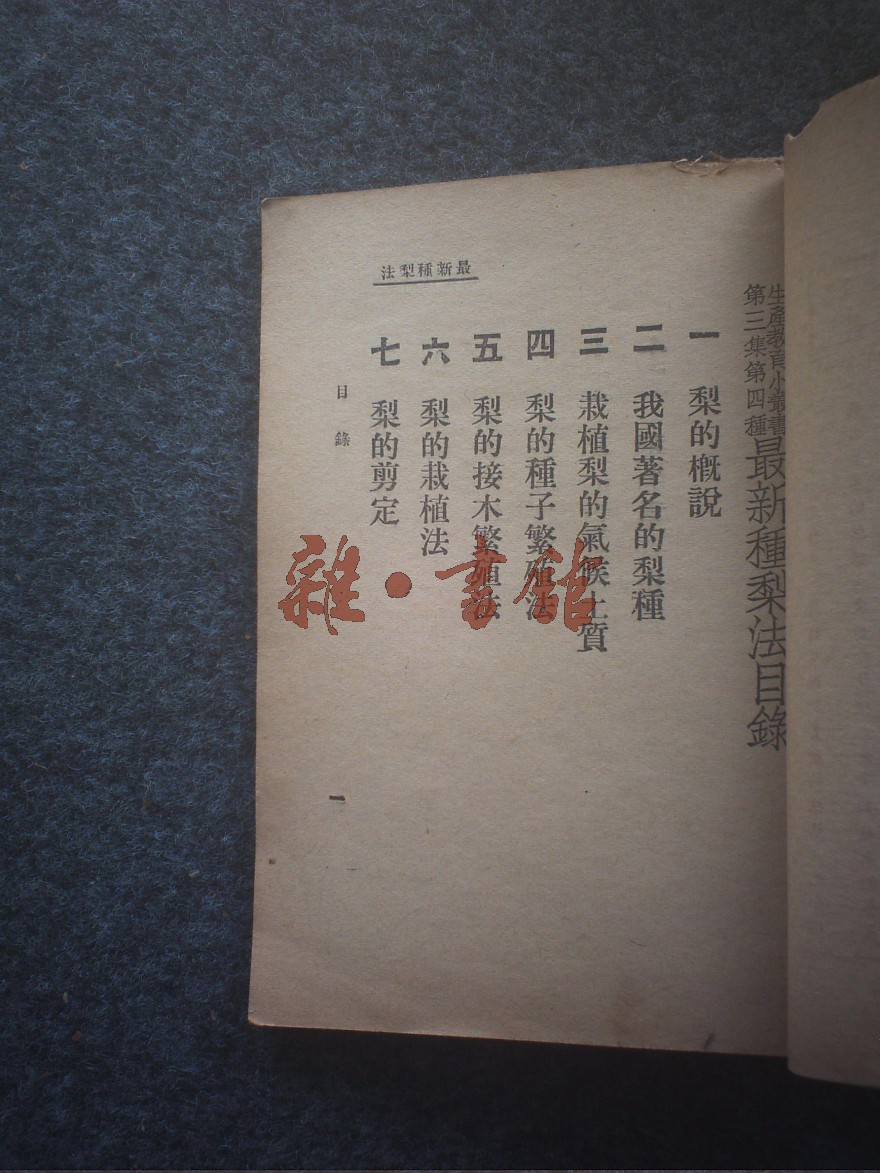 生產教育小叢書
第三集第四種
最新種梨法目錄
一 梨的概說
二 我國著名的梨種
三 栽植梨的氣候土質
四 梨的種子繁殖法
五 梨的接木繁殖法
六 梨的栽植法
七 梨的剪定
最新種梨法
目錄
一
雜·書館